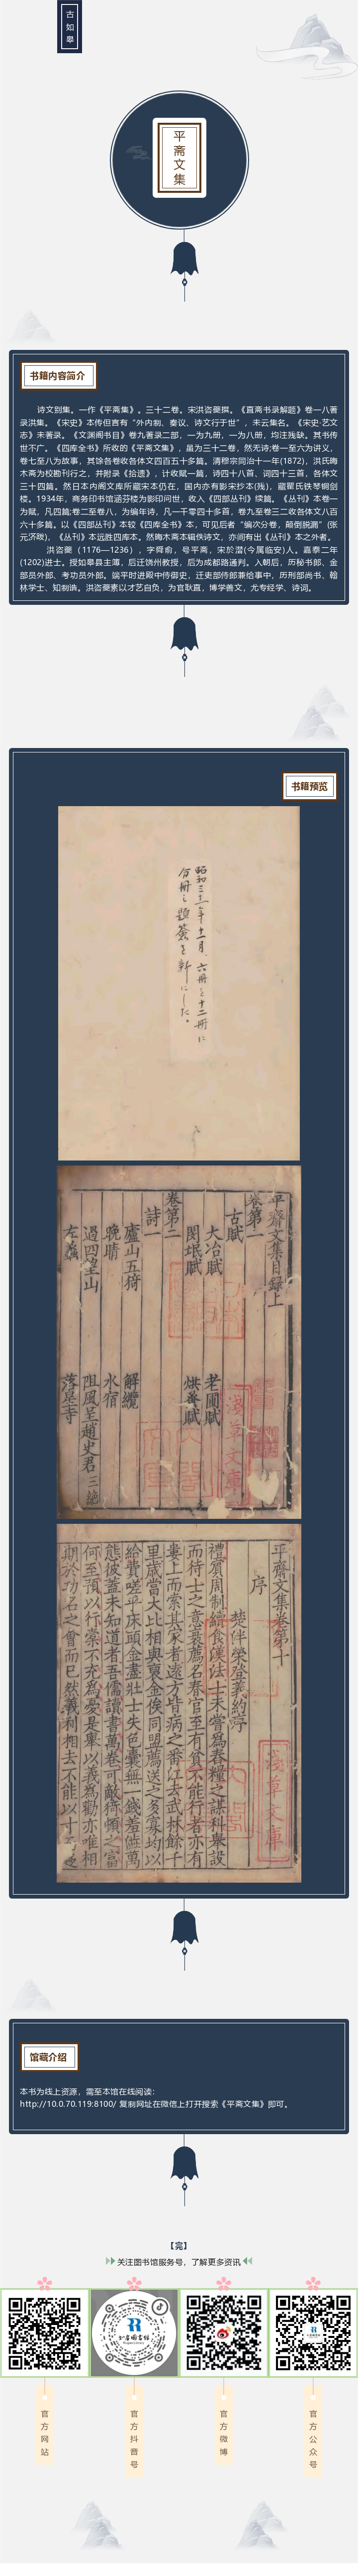 古如皋
平斋文集
书籍内容简介
诗文别集。一作《平斋集》。三十二卷。宋洪咨夔撰。《直斋书录解题》卷一八著
录洪集。《宋史》本传但言有“外内制、奏议、诗文行于世”，未云集名。《宋史·艺文
志》未著录。《文渊阁书目》卷九著录二部，一为九册，一为八册，均注残缺。其书传
世不广。《四库全书》所收的《平斋文集》，虽为三十二卷，然无诗;卷一至六为讲义，
卷七至八为故事，其馀各卷收各体文四百五十多篇。清穆宗同治十一年(1872)，洪氏晦
木斋为校勘刊行之，并附录《拾遗》，计收赋一篇，诗四十八首、词四十三首，各体文
三十四篇。然日本内阁文库所藏宋本仍在，国内亦有影宋抄本(残)，藏瞿氏铁琴铜剑
楼。1934年，商务印书馆涵芬楼为影印问世，收入《四部丛刊》续篇。《丛刊》本卷一
为赋，凡四篇;卷二至卷八，为编年诗，凡一千零四十多首，卷九至卷三二收各体文八百
六十多篇。以《四部丛刊》本较《四库全书》本，可见后者“编次分卷，颠倒脱漏”(张
元济跋)，《丛刊》本远胜四库本。然晦木斋本辑佚诗文，亦间有出《丛刊》本之外者。
洪咨夔（1176—1236），字舜俞，号平斋，宋於潜(今属临安)人。嘉泰二年
(1202)进士。授如皋县主簿，后迁饶州教授，后为成都路通判。入朝后，历秘书郎、金
部员外郎、考功员外郎。端平时进殿中侍御史，迁吏部侍郎兼给事中，历刑部尚书、翰
林学士、知制诰。洪咨夔素以才艺自负，为官耿直，博学善文，尤专经学、诗词。
书籍预览
昭和三十一年十一月、六冊を十二冊に
分冊し題簽を新にした。
平齋文集目錄上
卷第一
古賦
大冶賦　老圃賦
閔岷賦　烘蚤賦
卷第二
詩一
廬山五猗　解纜
晚晴　水宿
過四望山　阻風呈趙史君三絶
左蠡　落星寺
平齋文集卷第十
序
楚伴榮登義約序
禮賓周制續食漢法士未嘗為舂糧之謀科舉設
而待士之意衰薦名春官至有貧不能行者亦有
婁上而索其家者遠方皆病之番江去武林餘千
里歲當大比相與裒金俟同盟薦送之多寡均以
給費嗟乎床頭金盡壯士失色囊無一錢羞能萬
態彼蓋未知道者吾儒讀書萬卷可敵猗頓之富
何至預以行橐不充為憂是舉以義為勸亦唯相
期於功名之會而已然義利相去不能以寸
淺草文庫
馆藏介绍
本书为线上资源，需至本馆在线阅读：
http://10.0.70.119:8100/ 复制网址在微信上打开搜索《平斋文集》即可。
【完】
关注图书馆服务号，了解更多资讯
官方网站
官方抖音号
官方微博
官方公众号